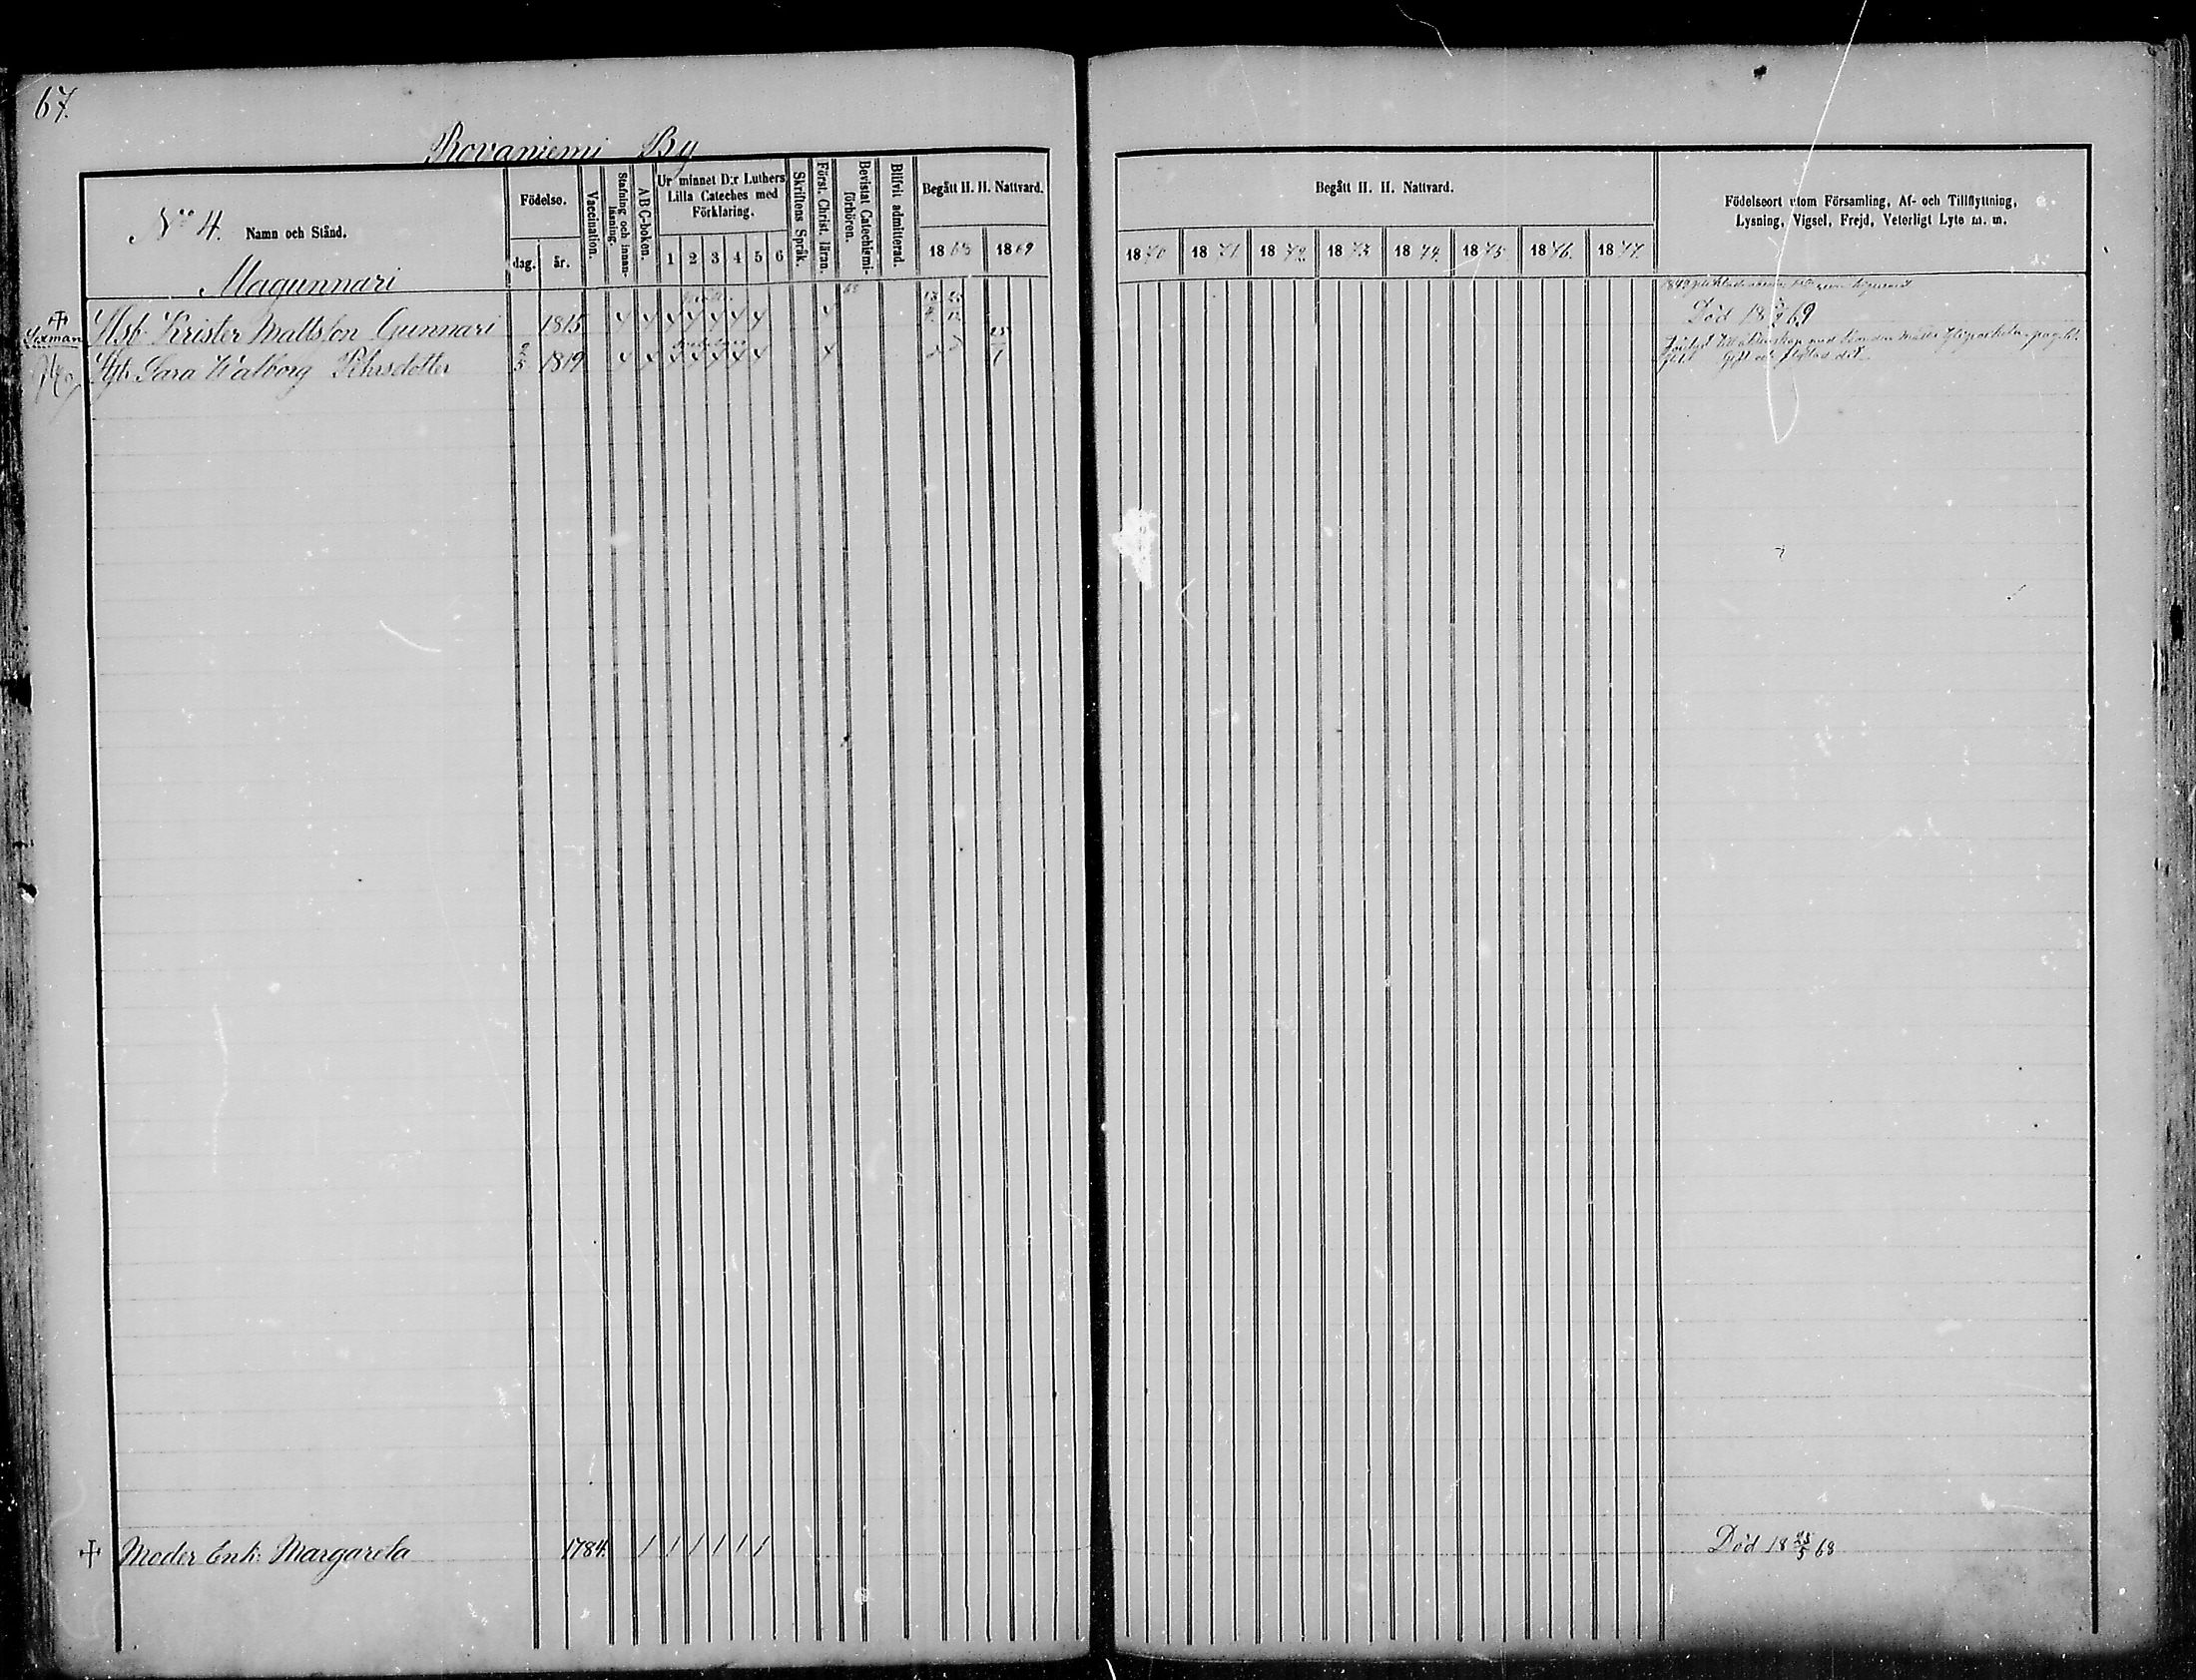 67.
Rovaniemi By
No 4. Namn och Stånd.
Födelse.
dag. år.
Vaccination.
Stafning och innanläsning.
ABC-boken.
Ur minnet D:r Luthers Lilla Cateches med Förklaring.
1 2 3 4 5 6
Skriftens Språk.
Förat. Christ. läran.
Bevistat Catechismi-förhören.
Blifvit admitterad.
Begått H. H. Nattvard.
1868 1869
Begått H. H. Nattvard.
1870 1871. 1872. 1873 1874. 1875 1876. 1877.
Födelseort utom Församling, Af- och Tillflyttning,
Lysning, Vigsel, Frejd, Veterligt Lyte m. m.
Magunnari
Sexman Hsb. Krister Mattsson Gunnari 1815 Död 69
Sara Walborg Pehrsdotter 2/5 1819
Moder Enk. Margareta 1784. / / / / / / Död 18 25/5 68